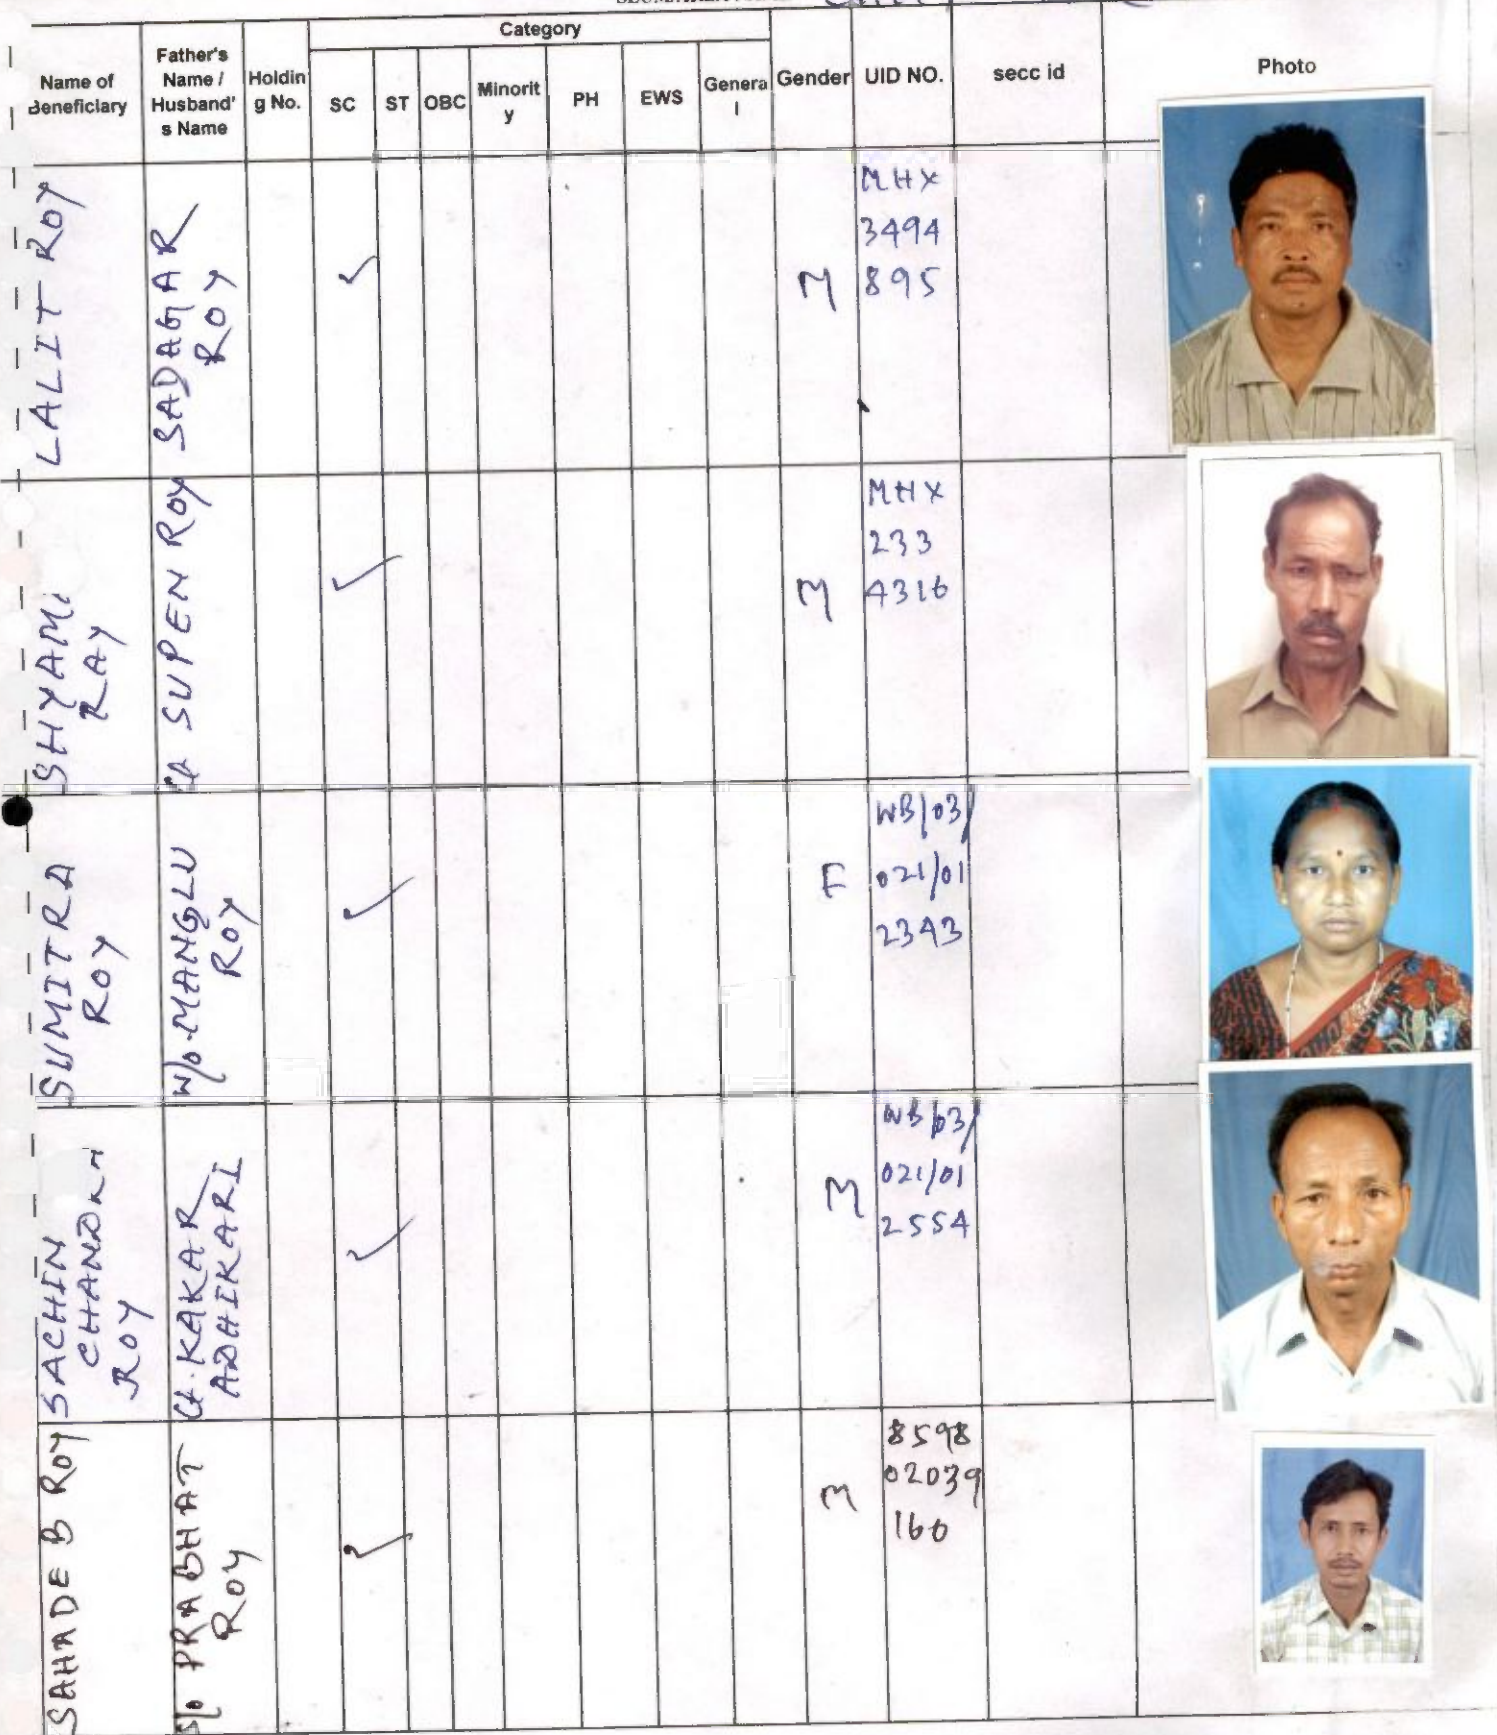 Category
Name of Beneficiary
Father's Name / Husband's Name
Holding No.
SC
ST
OBC
Minority
PH
EWS
General
Gender
UID NO.
secc id
Photo
LALIT ROY
SADAGAR
ROY
✓
M
MHX
3494
895
RAY
SUPEN ROY
✓
M
MHX
233
4316
SUMITRA
ROY
W/o. MANGLU
ROY
✓
F
WB/03/
021/01
2343
SACHIN
CHANDRA
ROY
KAKAR
ADHIKARI
✓
M
WB/03/
021/01
2554
SAHADEB ROY
S/o PRABHAT
ROY
✓
M
8598
02039
166